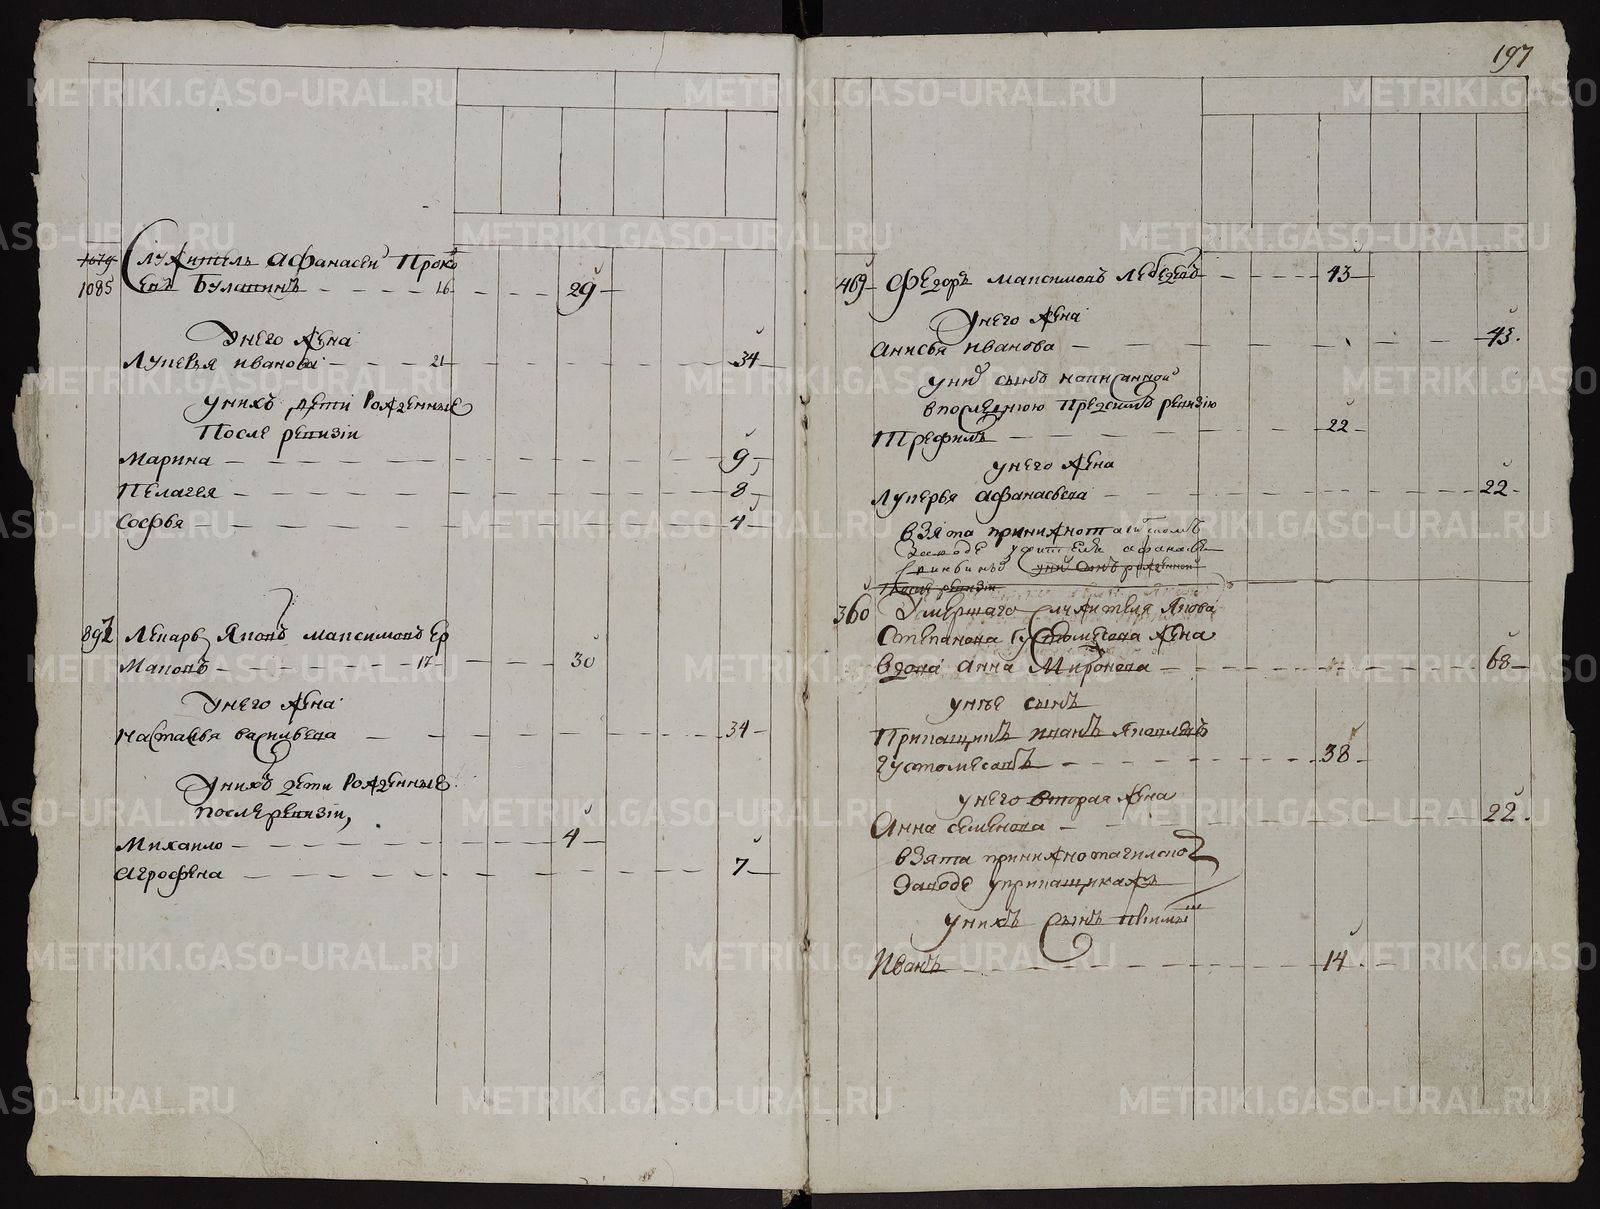 1079
1085
Служитель Афанасеи Проко
евъ Булатинъ 16 29
Унего жена
Луперья иванова 21 34
Унихъ дети рожденные
После ревизiи
Марина 9
Пелагея 8
Софья 4
892 Лекарь Яковъ Максимовъ Ер
маковъ 17 30
Унего жена
Настасья васильева 34
Унихъ дети рожденные
после ревизiи,
Михаило 4
Агрофена 7
197
469 Федоръ Максимовъ Лебедевъ 43
Унего жена
Анисья иванова 43
Уних сынъ написанной
в последнюю пред симъ ревизiю
Трефилъ 22
унего жена
Луперья Афанасьева 22
взята принижнотагилскомъ
заводе Афанасье
уних сынъ рожденной
после ревизiи
360 Умершаго служителя Якова
Степанова Густомесова жена
вдова Анна Миронова 68
унее сынъ
Прикащикъ иванъ Яковлевъ
густомесовъ 38
унего вторая жена
Анна семенова 22
взята принижнотагилско
Заводе уприкащика
унихъ сынъ
Иванъ 14
METRIKI.GASO-URAL.RU